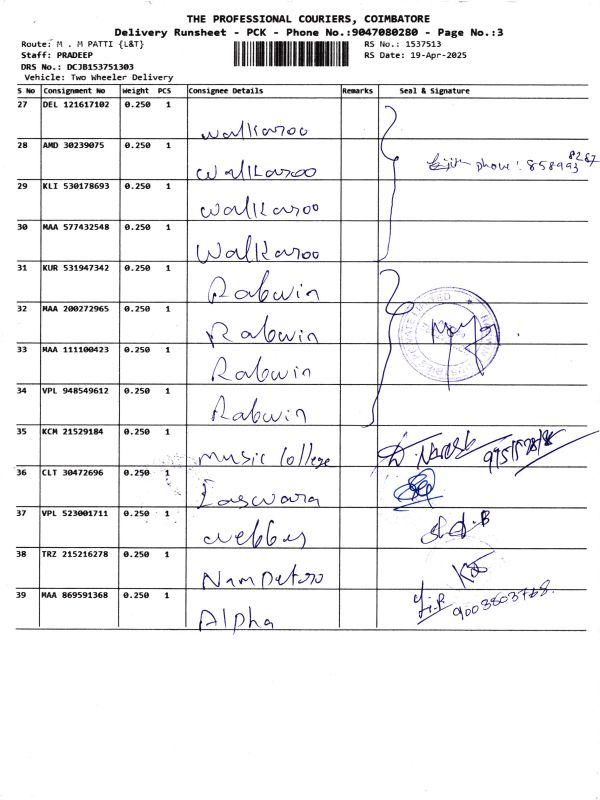 THE PROFESSIONAL COURIERS, COIMBATORE
Delivery Runsheet - PCK - Phone No.:9047080280 - Page No.:3
Route: M . M PATTI {L&T}
RS No.: 1537513
Staff: PRADEEP
RS Date: 19-Apr-2025
DRS No.: DCJB153751303
Vehicle: Two Wheeler Delivery
S No Consignment No Weight PCS Consignee Details Remarks Seal & Signature
27 DEL 121617102 0.250 1 Walkaroo
28 AMD 30239075 0.250 1 Walkaroo phone: 8589938287
29 KLI 530178693 0.250 1 Walkaroo
30 MAA 577432548 0.250 1 Walkaroo
31 KUR 531947342 0.250 1 Rabwin
32 MAA 200272965 0.250 1 Rabwin
33 MAA 111100423 0.250 1 Rabwin
34 VPL 948549612 0.250 1 Rabwin
35 KCM 21529184 0.250 1 Music College
36 CLT 30472696 0.250 1 Easwara
37 VPL 523001711 0.250 1
38 TRZ 215216278 0.250 1
39 MAA 869591368 0.250 1 Alpha 9003803768.